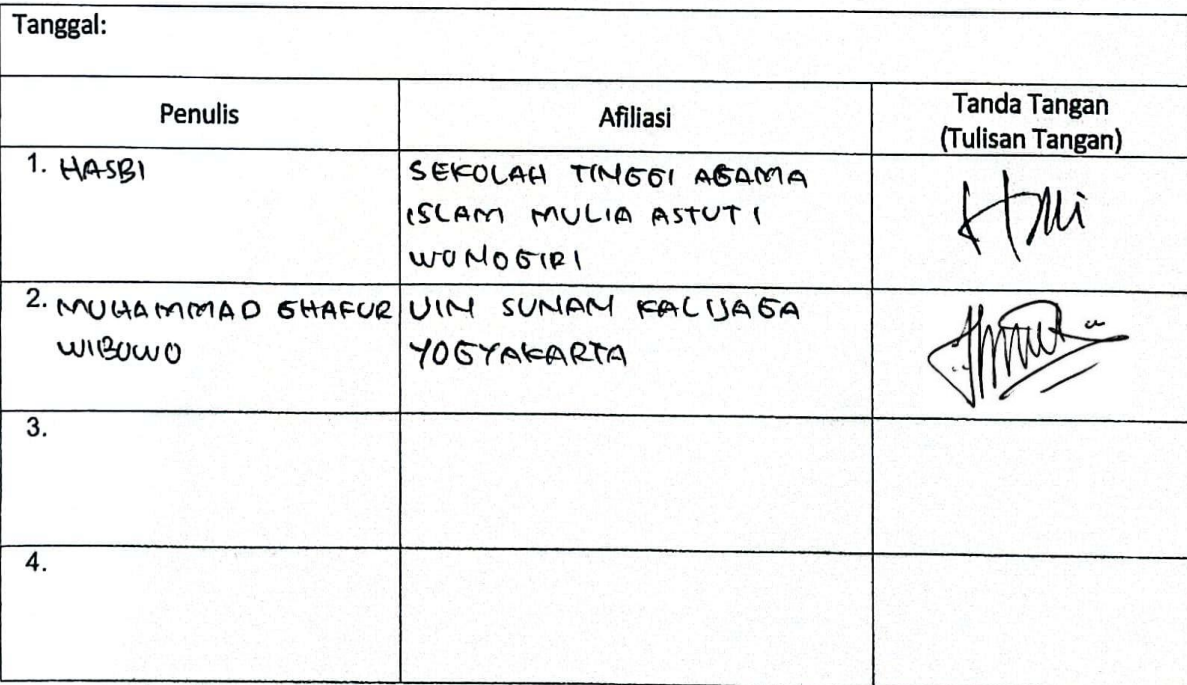 Tanggal:
Penulis
Afiliasi
Tanda Tangan
(Tulisan Tangan)
1. HASBI
SEKOLAH TINGGI AGAMA
ISLAM MULIA ASTUTI
WONOGIRI
2. MUHAMMAD GHAFUR
WIBOWO
UIN SUNAN KALIJAGA
YOGYAKARTA
3.
4.